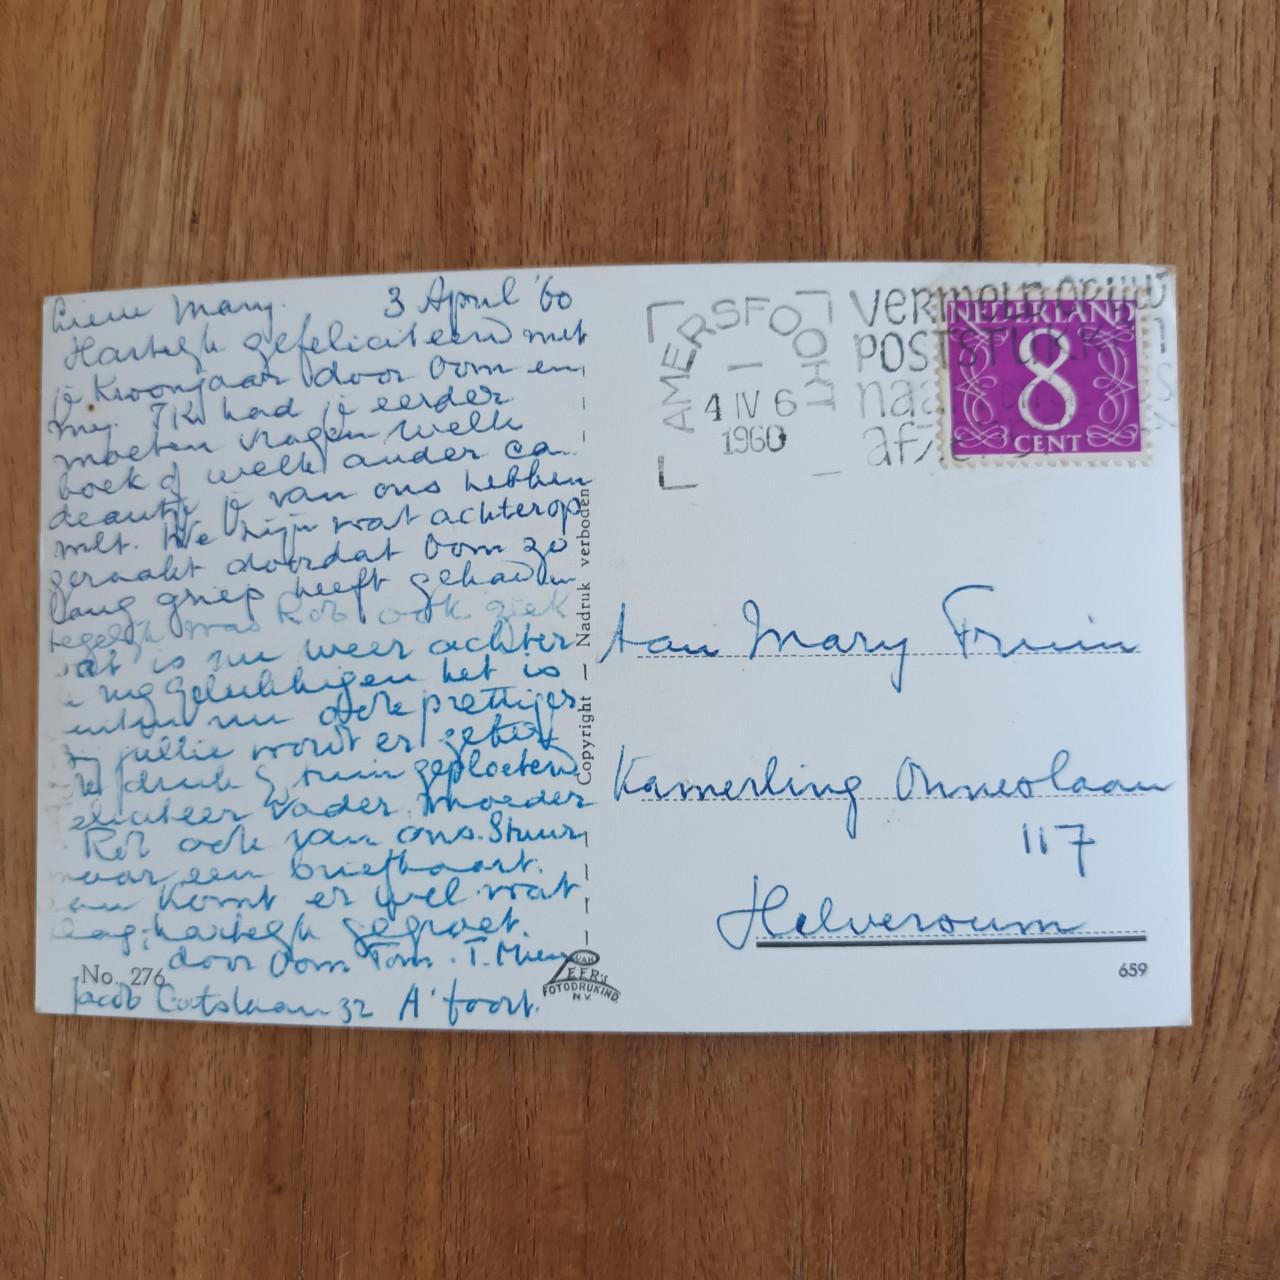 Lieve Mary. 3 April '60
Hartelijk gefeliciteerd met
je kroonjaar door Oom en
mij. Ik had je eerder
moeten vragen welk
boek of welk ander ca-
deautje je van ons hebben
wilt. We zijn wat achterop
geraakt doordat Oom zo
lang griep heeft gehad en
tegelijk was Rob ook ziek
dat is nu weer achter
de rug gelukkig en het is
buiten nu ook prettiger
Bij jullie wordt er zeker
ook druk
Feliciteer Vader Moeder
Rob ook van ons. Stuur
maar een briefkaart.
dan komt er wel wat
hartelijk gegroet.
door Oom Tom. T. Mien
Jacob Catslaan 32 A'foort.
No. 276
Copyright — Nadruk verboden
VAN LEER'S
FOTODRUKIND
N.V.
AMERSFOORT
1
4 IV 6
1960
vermeld op uw
POSTSTUKKEN
naa
afze
NEDERLAND
8
CENT
Aan Mary Fruin
Kamerling Onneslaan
117
Hilversum
659